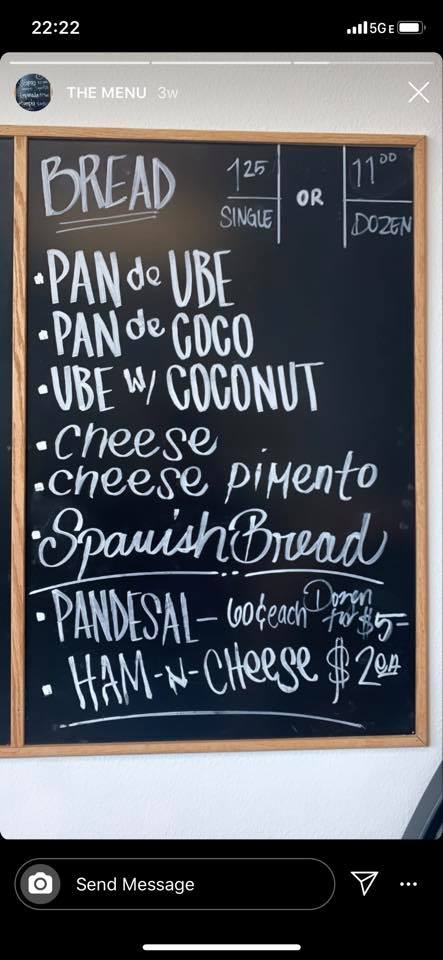 22:22
5GE
THE MENU 3w
BREAD
1 25 SINGLE OR 11 00 DOZEN
PAN de UBE
PAN de COCO
UBE W/ COCONUT
cheese
cheese piMento
Spanish Bread
PANDESAL - 60¢ each Dozen for $5-
HAM-N-CHeese $2 eA
Send Message